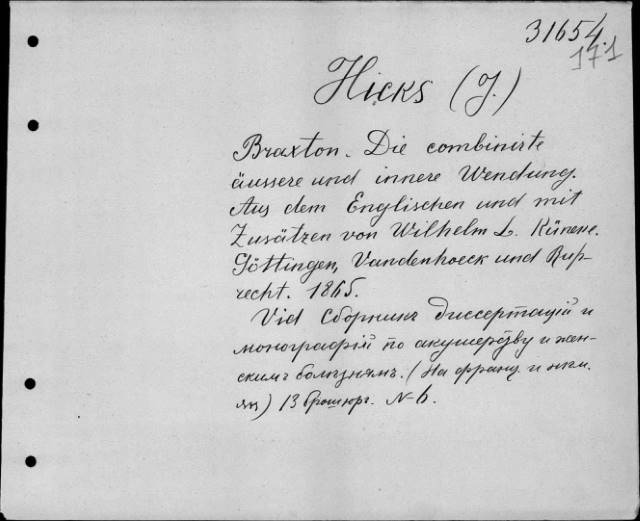 31654.
171
Hicks (J.)
Braxton. Die combinirte
äussere und innere Wendung.
Aus dem Englischen und mit
Zusätzen von Wilhelm L. Künene.
Göttingen, Vandenhoeck und Rup-
recht. 1865.
Vid Сборникъ диссертацій и
монографій по акушерству и жен-
скимъ болѣзнямъ. (На франц. и нѣм.
яз.) 13 брошюръ. N 6.